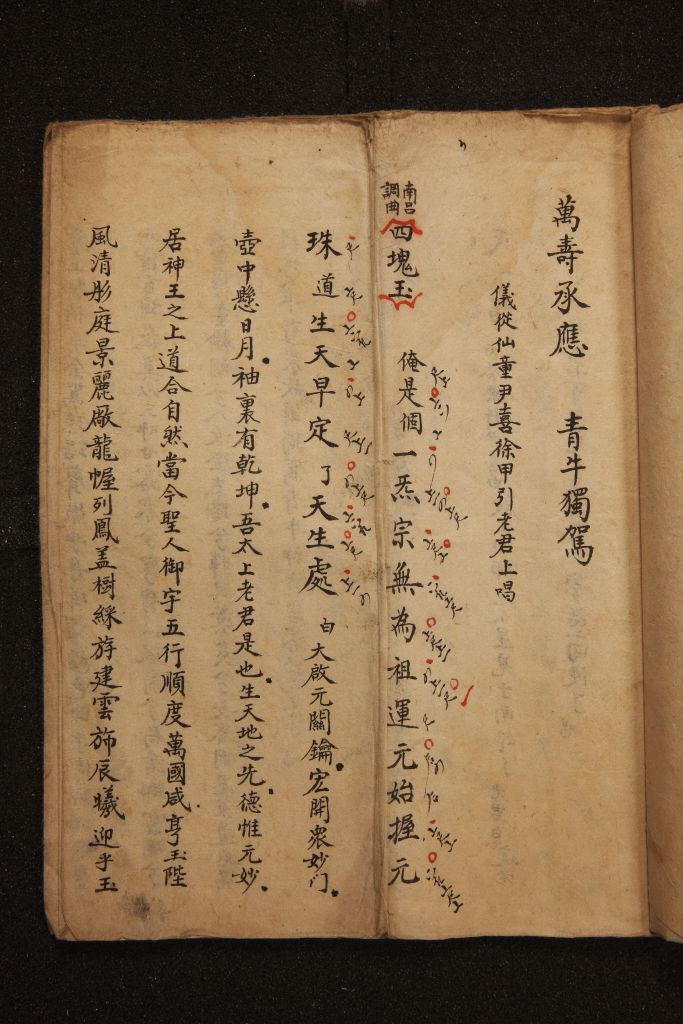 萬壽承應　青牛獨駕
儀從仙童尹喜徐甲引老君上唱
南呂調曲　四塊玉　俺是個一炁宗無為祖運元始握元
珠道生天早定了天生處　白　大啟元關鑰宏開衆妙门
壺中懸日月袖裏有乾坤吾太上老君是也生天地之先德惟元妙
居神王之上道合自然當今聖人御宇五行順度萬國咸亨玉陛
風清彤庭景麗嚴龍幄列鳳盖樹綵斿建雲斾辰曦迎乎玉